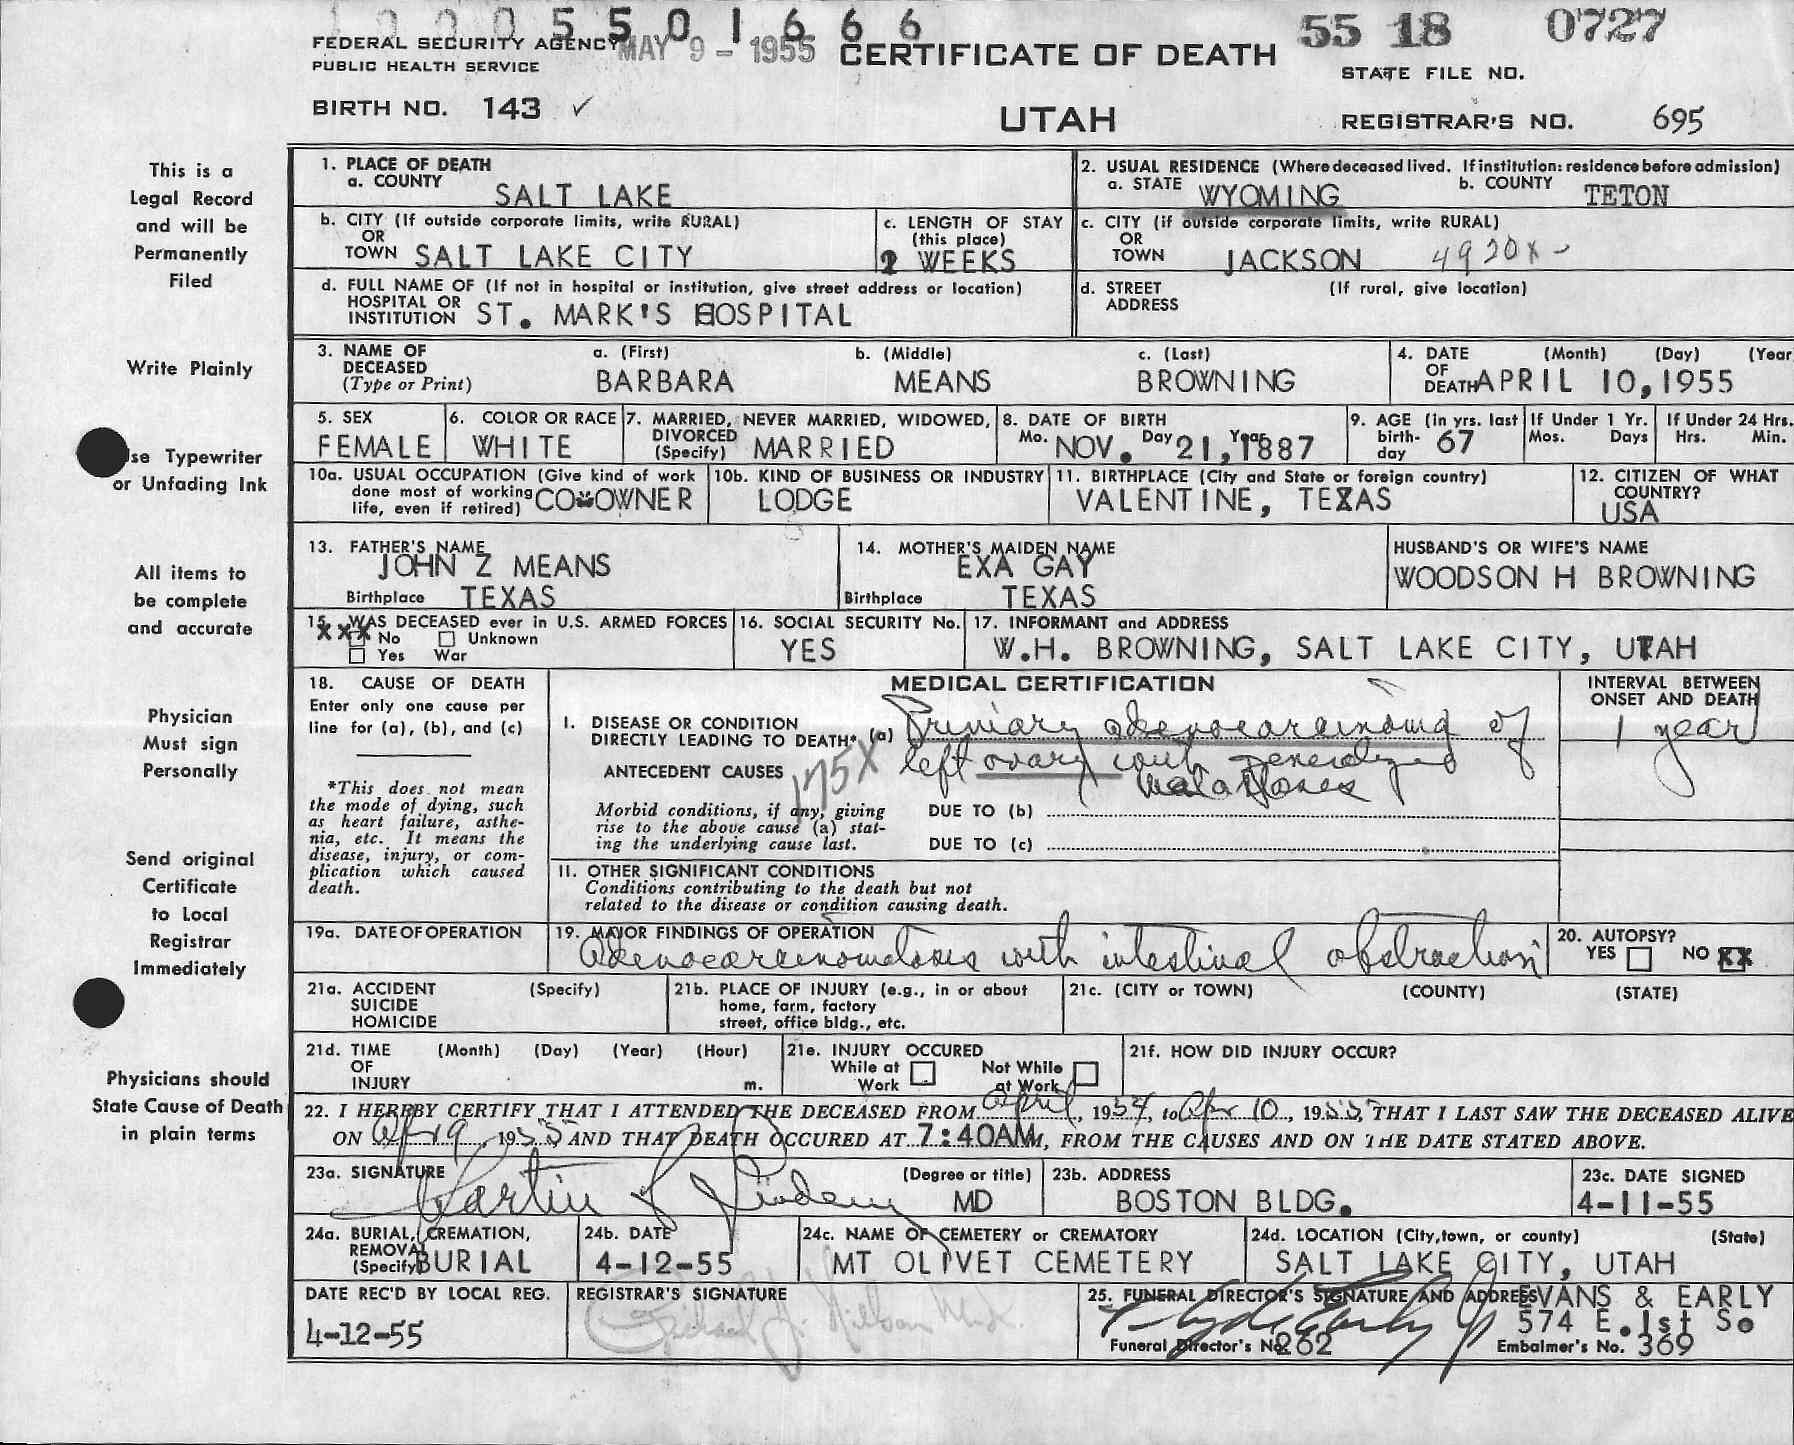 1000 5501666
FEDERAL SECURITY AGENCY MAY 9 - 1955 CERTIFICATE OF DEATH 55 18 0727
PUBLIC HEALTH SERVICE STATE FILE NO.
BIRTH NO. 143 ✓ UTAH REGISTRAR'S NO. 695
This is a
Legal Record
and will be
Permanently
Filed
Write Plainly
Use Typewriter
or Unfading Ink
All items to
be complete
and accurate
Physician
Must sign
Personally
Send original
Certificate
to Local
Registrar
Immediately
Physicians should
State Cause of Death
in plain terms
1. PLACE OF DEATH
a. COUNTY SALT LAKE
2. USUAL RESIDENCE (Where deceased lived. If institution: residence before admission)
a. STATE WYOMING b. COUNTY TETON
b. CITY (If outside corporate limits, write RURAL)
OR
TOWN SALT LAKE CITY
c. LENGTH OF STAY
(this place)
2 WEEKS
c. CITY (if outside corporate limits, write RURAL)
OR
TOWN JACKSON 4920X-
d. FULL NAME OF (If not in hospital or institution, give street address or location)
HOSPITAL OR
INSTITUTION ST. MARK'S HOSPITAL
d. STREET (If rural, give location)
ADDRESS
3. NAME OF a. (First) b. (Middle) c. (Last)
DECEASED
(Type or Print) BARBARA MEANS BROWNING
4. DATE (Month) (Day) (Year
OF
DEATH APRIL 10,1955
5. SEX
FEMALE
6. COLOR OR RACE
WHITE
7. MARRIED, NEVER MARRIED, WIDOWED,
DIVORCED
(Specify) MARRIED
8. DATE OF BIRTH
Mo. NOV. Day 21, Year 1887
9. AGE (in yrs. last
birth-
day 67
If Under 1 Yr.
Mos. Days
If Under 24 Hrs.
Hrs. Min.
10a. USUAL OCCUPATION (Give kind of work
done most of working
life, even if retired) CO-OWNER
10b. KIND OF BUSINESS OR INDUSTRY
LODGE
11. BIRTHPLACE (City and State or foreign country)
VALENTINE, TEXAS
12. CITIZEN OF WHAT
COUNTRY?
USA
13. FATHER'S NAME
JOHN Z MEANS
Birthplace TEXAS
14. MOTHER'S MAIDEN NAME
EXA GAY
Birthplace TEXAS
HUSBAND'S OR WIFE'S NAME
WOODSON H BROWNING
15. WAS DECEASED ever in U.S. ARMED FORCES
XXX No Unknown
Yes War
16. SOCIAL SECURITY No.
YES
17. INFORMANT and ADDRESS
W.H. BROWNING, SALT LAKE CITY, UTAH
18. CAUSE OF DEATH
Enter only one cause per
line for (a), (b), and (c)
*This does not mean
the mode of dying, such
as heart failure, asthe-
nia, etc. It means the
disease, injury, or com-
plication which caused
death.
MEDICAL CERTIFICATION
I. DISEASE OR CONDITION
DIRECTLY LEADING TO DEATH* (a) Primary adenocarcinoma of
left ovary with generalized
metastases
ANTECEDENT CAUSES 175X
Morbid conditions, if any, giving
rise to the above cause (a) stat-
ing the underlying cause last.
DUE TO (b)
DUE TO (c)
INTERVAL BETWEEN
ONSET AND DEATH
1 year
II. OTHER SIGNIFICANT CONDITIONS
Conditions contributing to the death but not
related to the disease or condition causing death.
19a. DATE OF OPERATION
19. MAJOR FINDINGS OF OPERATION
Adenocarcinomatosis with intestinal obstruction
20. AUTOPSY?
YES NO XX
21a. ACCIDENT (Specify)
SUICIDE
HOMICIDE
21b. PLACE OF INJURY (e.g., in or about
home, farm, factory
street, office bldg., etc.
21c. (CITY or TOWN) (COUNTY) (STATE)
21d. TIME (Month) (Day) (Year) (Hour)
OF
INJURY m.
21e. INJURY OCCURED
While at Work Not While at Work
21f. HOW DID INJURY OCCUR?
22. I HEREBY CERTIFY THAT I ATTENDED THE DECEASED FROM April, 1954, to Apr 10, 1955, THAT I LAST SAW THE DECEASED ALIVE
ON Apr 9, 1955 AND THAT DEATH OCCURED AT 7:40AM M, FROM THE CAUSES AND ON THE DATE STATED ABOVE.
23a. SIGNATURE (Degree or title)
Martin MD
23b. ADDRESS
BOSTON BLDG.
23c. DATE SIGNED
4-11-55
24a. BURIAL, CREMATION,
REMOVAL
(Specify) BURIAL
24b. DATE
4-12-55
24c. NAME OF CEMETERY or CREMATORY
MT OLIVET CEMETERY
24d. LOCATION (City, town, or county) (State)
SALT LAKE CITY, UTAH
DATE REC'D BY LOCAL REG.
4-12-55
REGISTRAR'S SIGNATURE
25. FUNERAL DIRECTOR'S SIGNATURE AND ADDRESS EVANS & EARLY
574 E. 1st So
Funeral Director's No. 262 Embalmer's No. 369